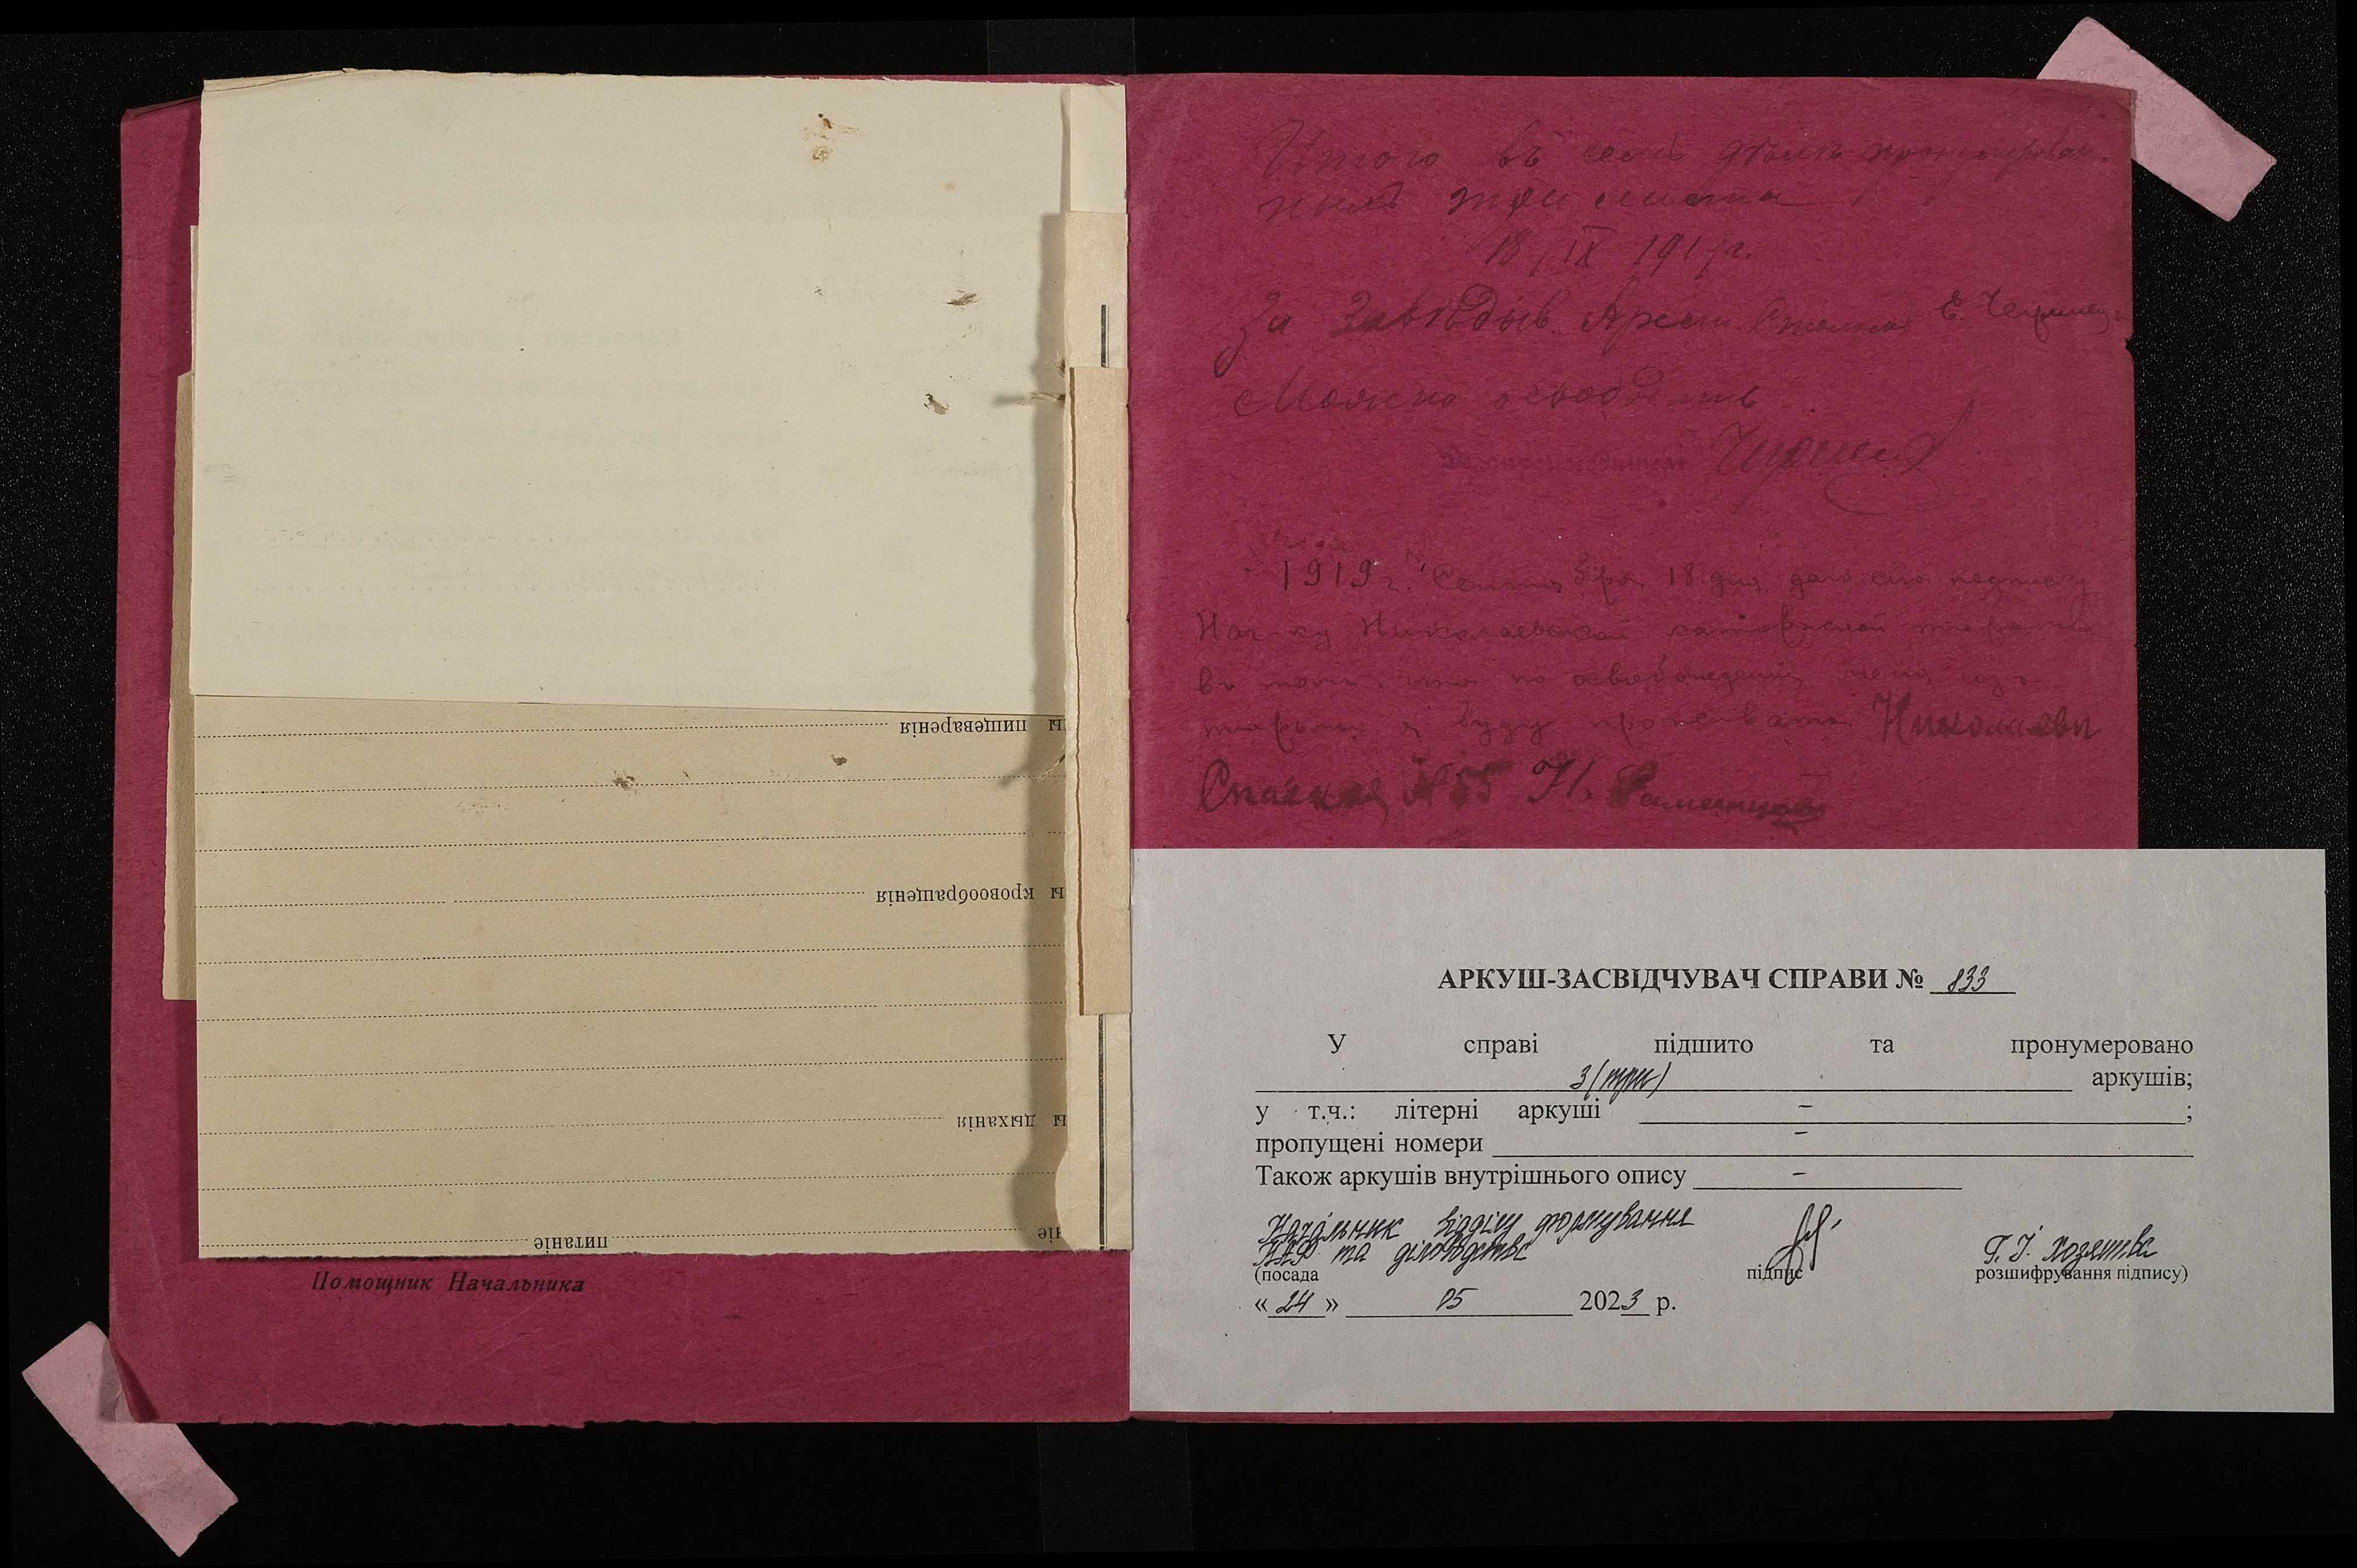 ы пищеваренія
ы кровообращенія
ы дыханія
ніе питаніе
Помощник Начальника
Итого въ семъ дѣлѣ пронумерован-
ныхъ три листа
18/IX 191 г.
За Завѣдыв. Арест. Столомъ Е.
Можно освободить
1919 г. Сентября 18 дня даю сію подписку
Нач-ку Николаевской каторжной тюрьмы
въ томъ, что по освобожденіи меня изъ
тюрьмы я буду проживать Николаевъ
Спасская № 55 Н.
АРКУШ-ЗАСВІДЧУВАЧ СПРАВИ № 833
У справі підшито та пронумеровано
3 (три) аркушів;
у т.ч.: літерні аркуші – ;
пропущені номери –
Також аркушів внутрішнього опису –
Начальник відділу формування
НАФ та діловодства
(посада підпис розшифрування підпису)
« 24 » 05 2023 р.